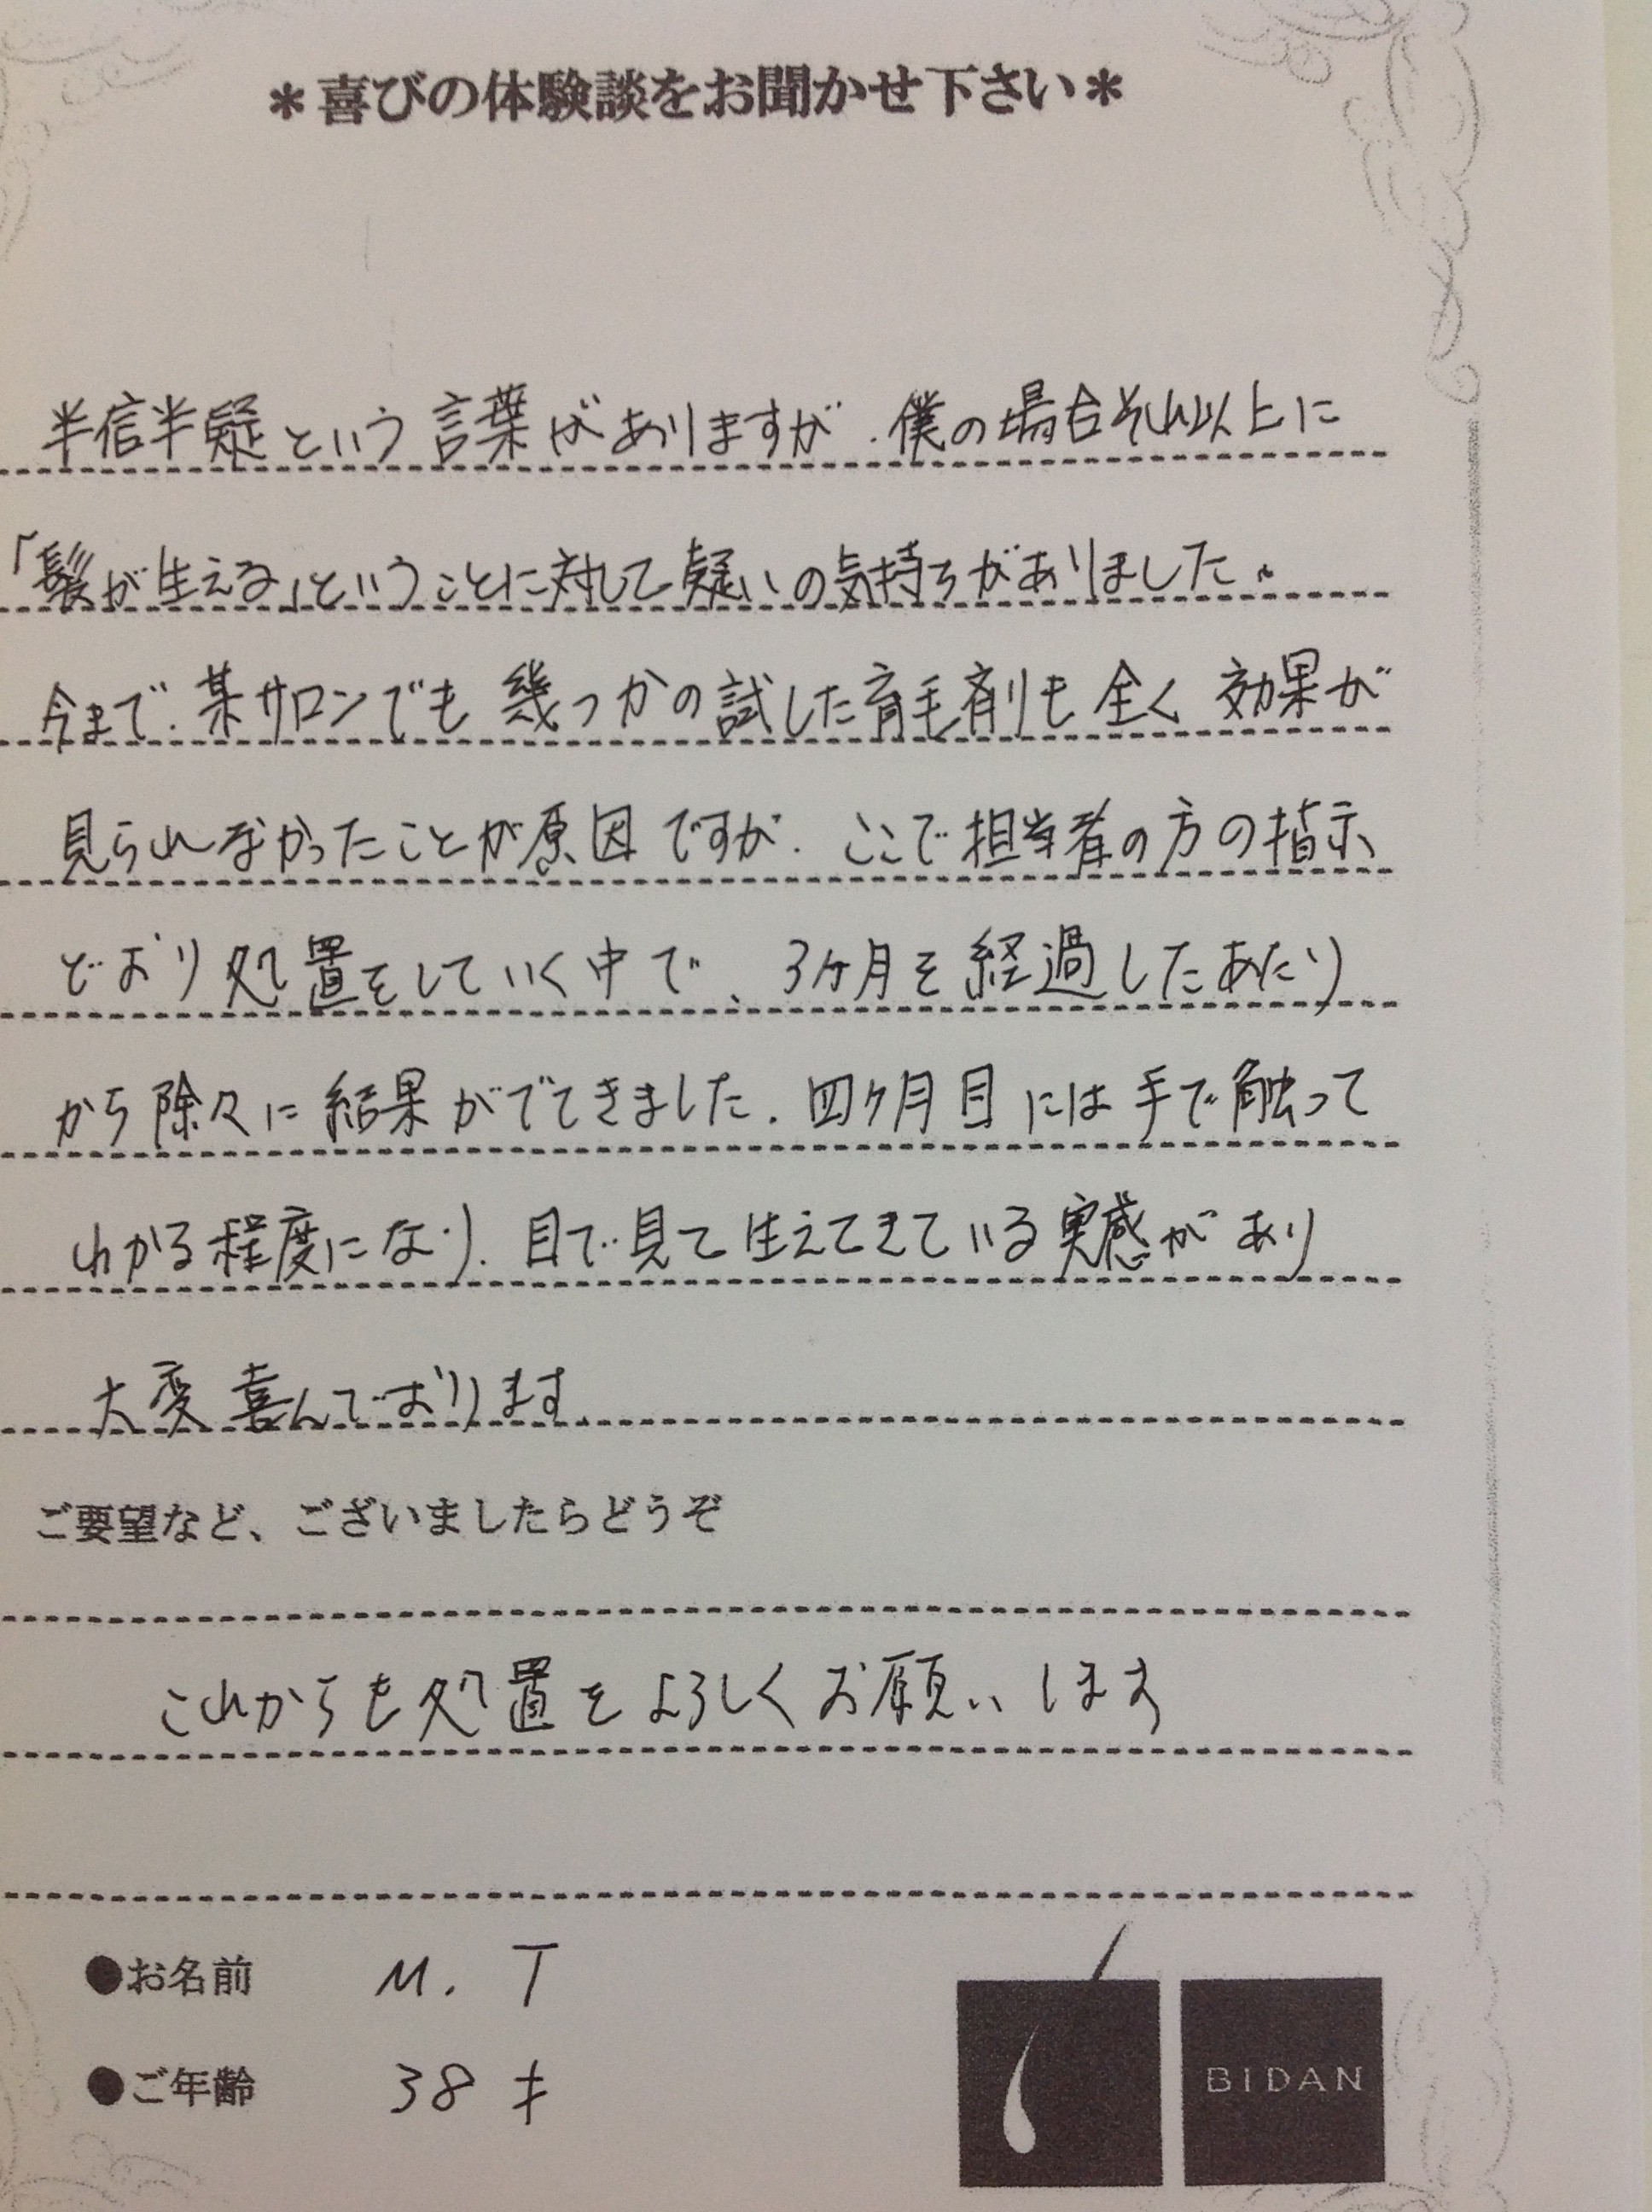 ＊喜びの体験談をお聞かせ下さい＊
半信半疑という言葉がありますが、僕の場合それ以上に
「髪が生える」ということに対して疑いの気持ちがありました。
今まで、某サロンでも幾つかの試した育毛剤も全く効果が
見られなかったことが原因ですが、ここで担当者の方の指示
どおり処置をしていく中で、3ヶ月を経過したあたり
から除々に結果がでてきました。四ヶ月目には手で触って
わかる程度になり、目で見て生えてきている実感があり
大変喜んでおります。
ご要望など、ございましたらどうぞ
これからも処置をよろしくお願いします
●お名前 M. T
●ご年齢 38才
BIDAN